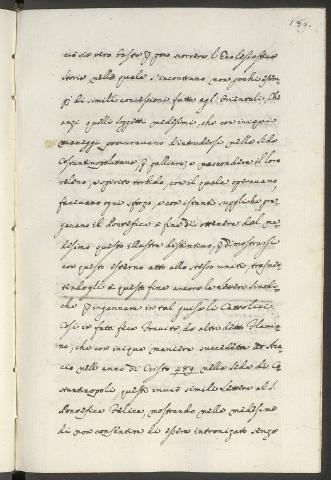 189.
ciò sia vero basta p poco scorrere l'Ecclesiastica
Storia nella quale s'incontrano non pochi esem-
pj di simili concessioni fatte agl'Orientali, Che
anzi quelli soggetti medesimi, che con iniqui
maneggi procuravano d'intrudersi nella Sede
Costantinopolitana, p palliare, e nascondere il loro
veleno, e spirito torbido, con il quale operavano,
facevano ogni sforzo, e con istanti suppliche pre-
gavano il Pontefice a fine di ottenere dal me-
desimo questo illustre distintivo, p dimostrarsi
con questo esterno atto allo stesso uniti, trasmet-
tendogli a questo fine ancora le lettere Sinodi-
che p ingannare in tal guisa li Cattolici.
Così in fatti fece Fravita, da altri detto Flavia-
no, che con inique maniere succedette ad Aca-
cio nell'anno di Cristo 489. nella Sede di Co-
stantinopoli, questi inviò simile lettera al S.
Pontefice Felice, mostrando nella medesima
di non consentire di essere intronizato senza